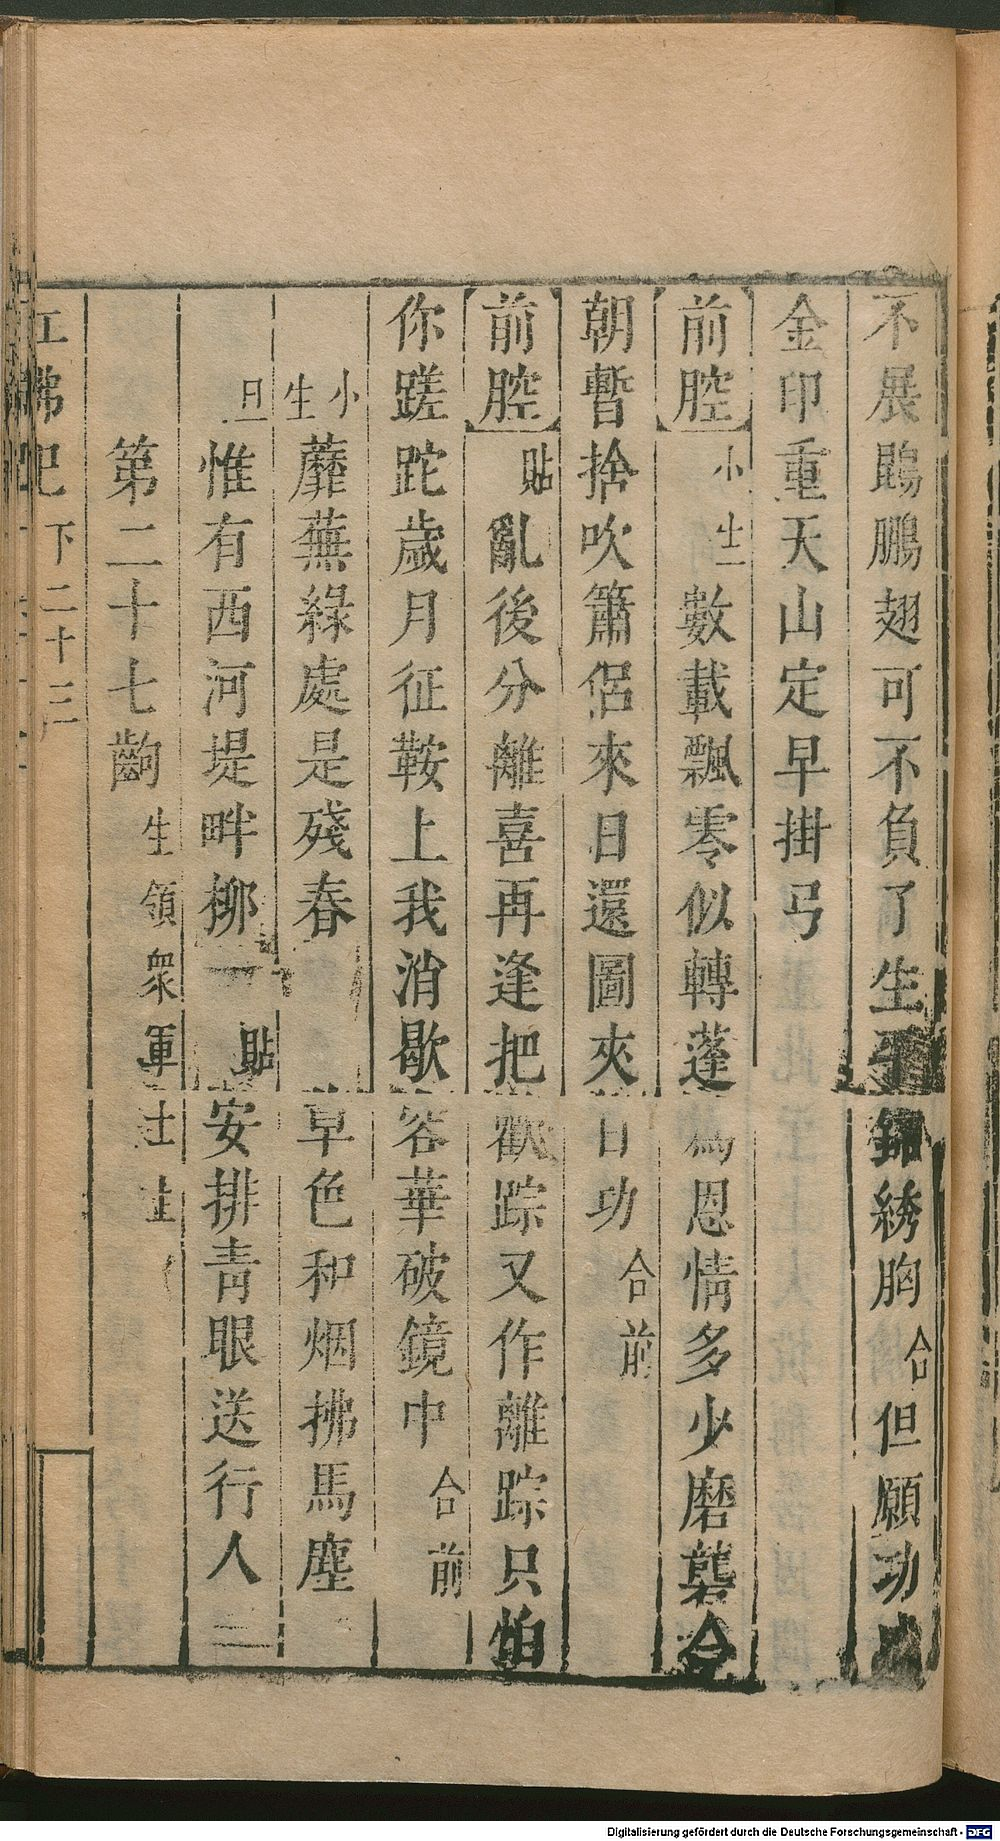 不展鵾鵬翅可不負了生平錦綉胸合但願功成
金印重天山定早掛弓
前腔小生數載飄零似轉蓬爲恩情多少磨礱今
朝暫捨吹簫侶來日還圖夾日功合前
前腔貼亂後分離喜再逢把歡踪又作離踪只怕
你蹉跎歲月征鞍上我消歇容華破鏡中合前
小生蘼蕪綠處是殘春 草色和烟拂馬塵
旦惟有西河堤畔柳 貼安排青眼送行人
第二十七齣生領衆軍士上
紅拂記 下 二十三
Digitalisierung gefördert durch die Deutsche Forschungsgemeinschaft - DFG